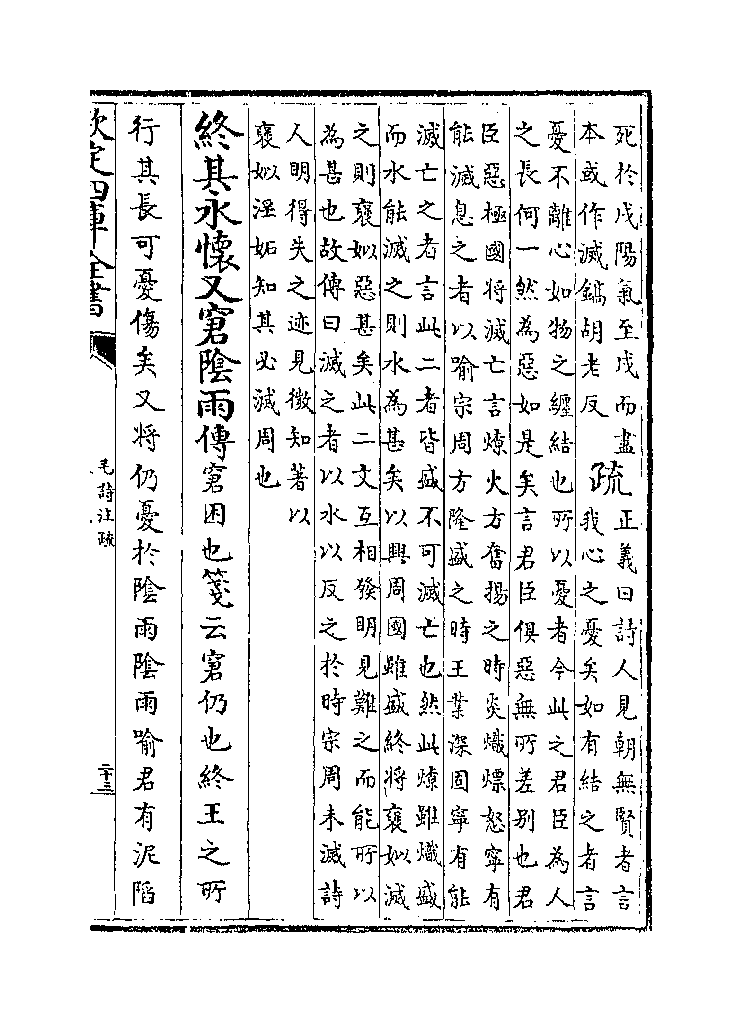 死於戌陽氣至戌而盡
本或作滅鎬胡老反
疏
正義曰詩人見朝無賢者言
我心之憂矣如有結之者言
憂不離心如物之纏結也所以憂者今此之君臣為人
之長何一然為惡如是矣言君臣俱惡無所差别也君
臣惡極國將滅亡言燎火方奮揚之時炎熾熛怒寧有
能滅息之者以喻宗周方隆盛之時王業深固寧有能
滅亡之者言此二者皆盛不可滅亡也然此燎雖熾盛
而水能滅之則水為甚矣以興周國雖盛終將褒姒滅
之則褒姒惡甚矣此二文互相發明見難之而能所以
為甚也故傳曰滅之者以水以反之於時宗周未滅詩
人明得失之迹見微知著以
褒姒淫妬知其必滅周也
終其永懷又窘陰雨傳窘困也箋云窘仍也終王之所
行其長可憂傷矣又將仍憂於陰雨陰雨喻君有泥陷
欽定四庫全書
毛詩注疏
二十三